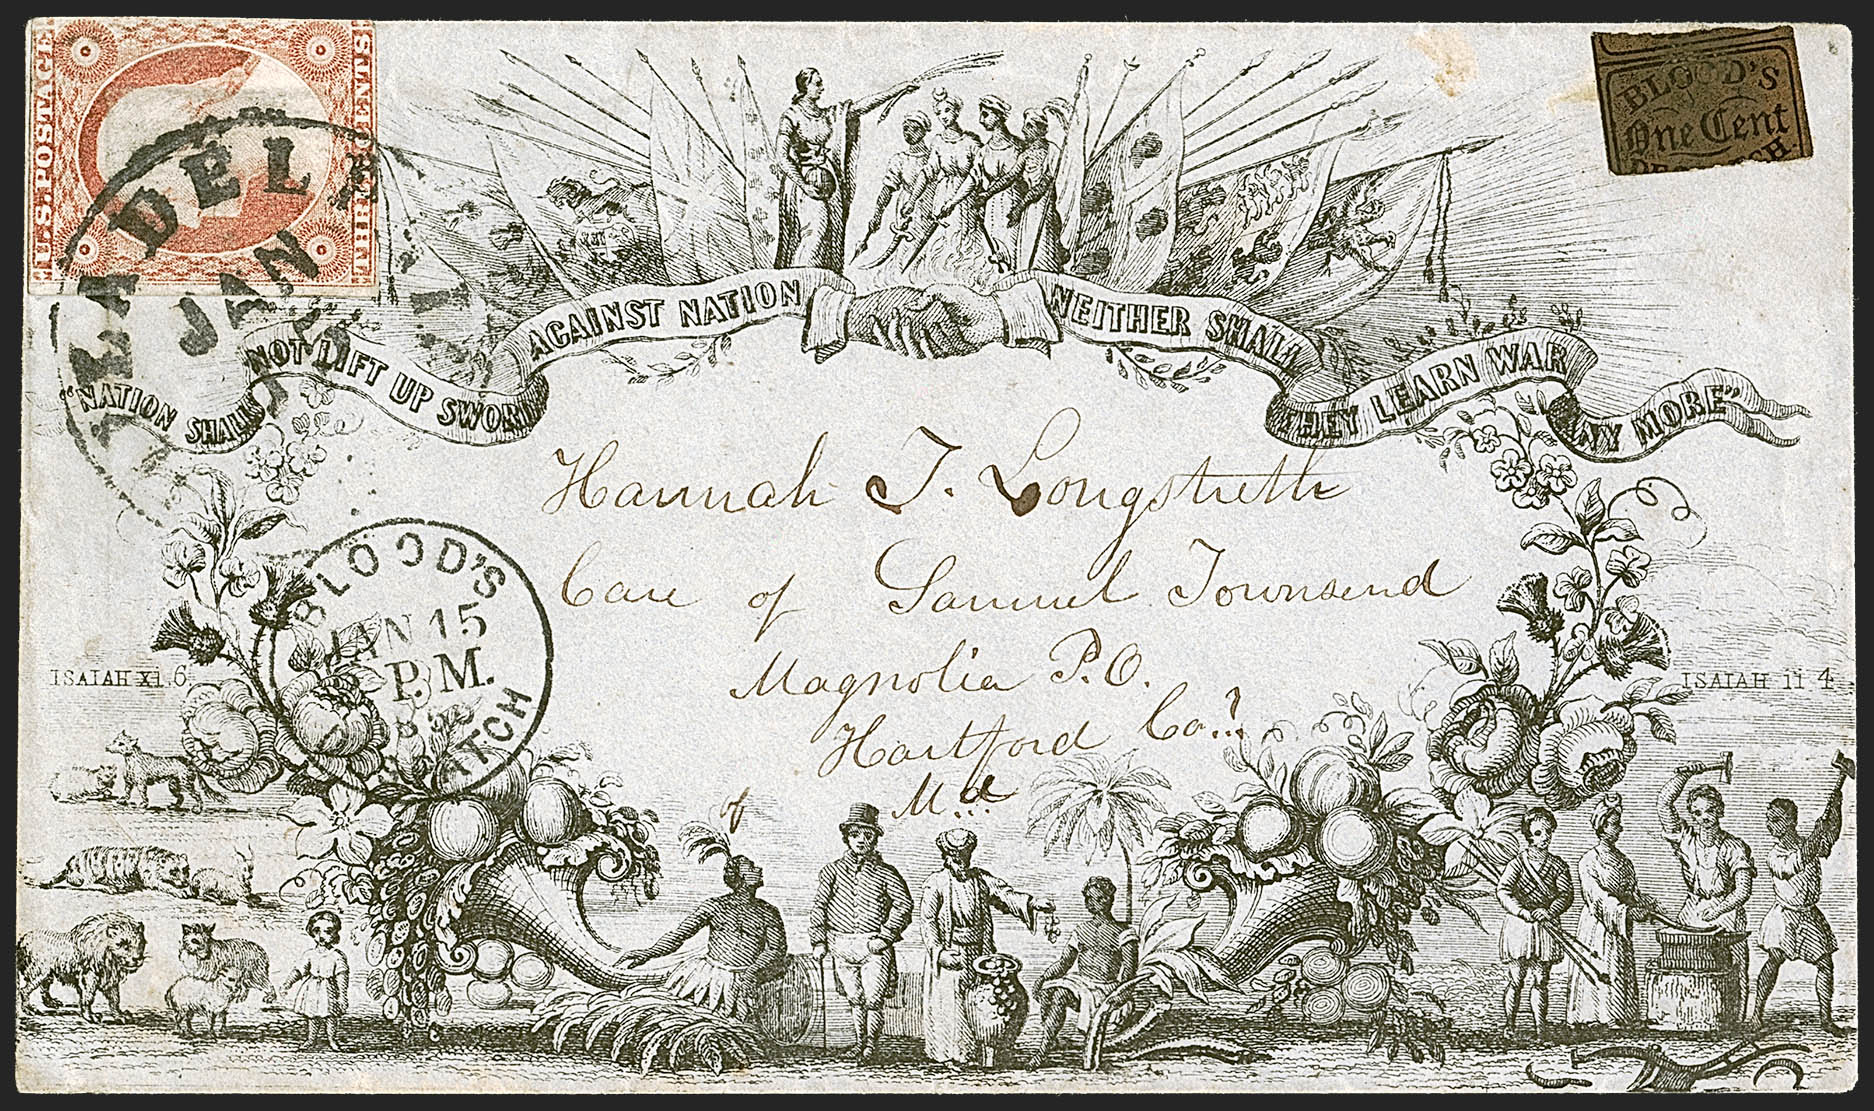 U.S. POSTAGE
THREE CENTS
BLOOD'S
One Cent
DESPATCH.
PHILADELPHIA
JAN
"NATION SHALL NOT LIFT UP SWORD AGAINST NATION NEITHER SHALL THEY LEARN WAR ANY MORE"
Hannah T. Longstreth
Care of Samuel Townsend
Magnolia P.O.
Hartford Co.
of Md
BLOOD'S
JAN 15
P.M.
ISAIAH XI.6.
ISAIAH 11 4